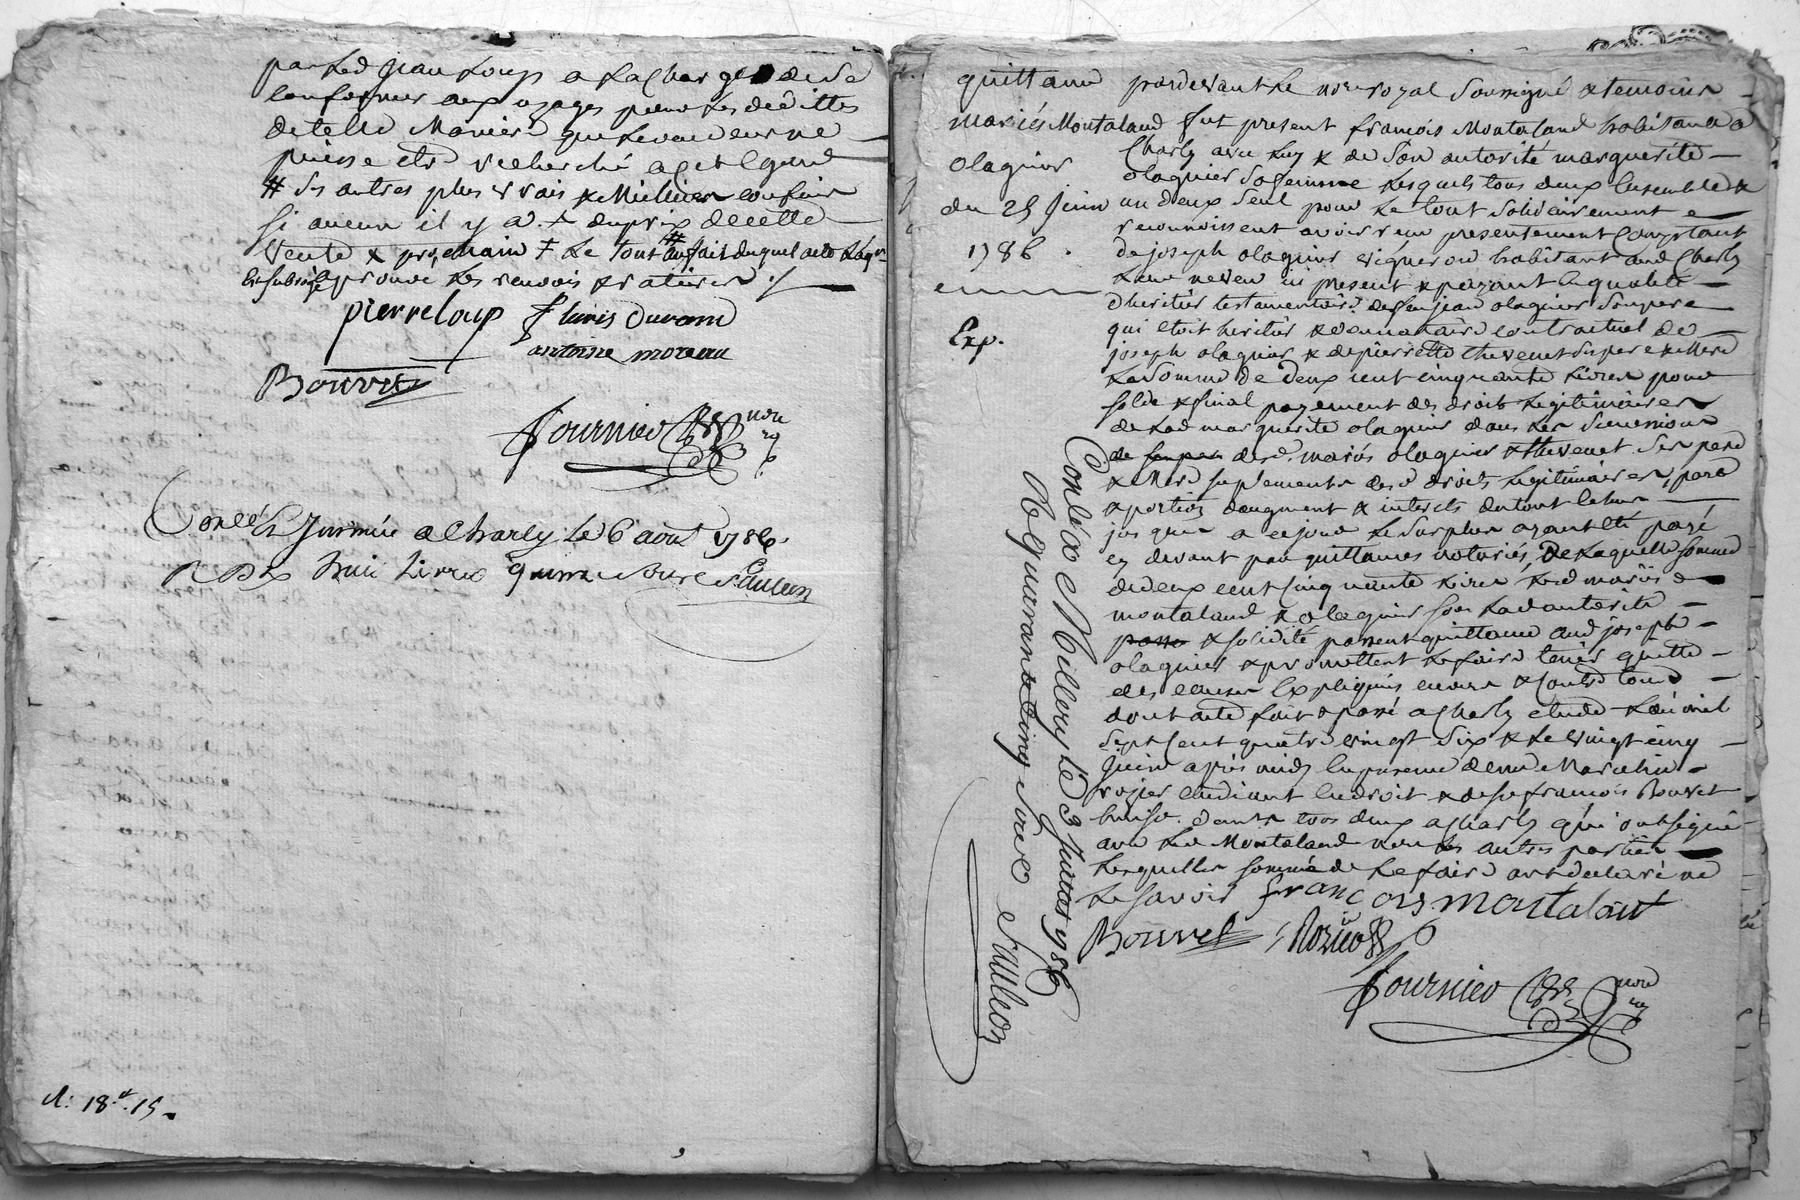 par led jean Loup a la charge de se
conformer aux uzages pour les dedittes
de telle maniere que le vendeur ne
puisse etre recherché a cet egard
# ses autres plus vrais & meilleurs confins
si aucun il y a. + du prix de cette
vente & pr. main + Le tout # au fait duquel acte
approuvé les renvois & ratures ./.
pierre loup fleuris durand
antoine moreau
Bouvet
fournier nore
Conlé & Insinué a Charly le 6 aout 1786
R dix huit livres quinze sous Sauleon
d: 18.# 15
quittance
mariés Montaland
olagnier
du 25 Juin
1786.
Exp.
pardevant le nore royal soussigné & temoins
fut present françois Montaland habitant a
Charly avec luy & de son autorité marguerite
olagnier sa femme lesquels tous deux Ensemble &
un deux seul pour le tout solidairement
reconnoissent avoir reçu presentement Comptant
de joseph olagnier vigneron habitant aud Charly
leur neveu ici present & payant En qualité
dheritier testamentaire de feu jean olagnier son pere
qui etoit heritier & donnataire contractuel de
joseph olagnier & de pierrette thevenet ses pere & mere
la somme de deux cent cinquante livres pour
solde & final payement des droits legitimaires
de lad marguerite olagnier dans les successions
de son pere desd. mariés olagnier & thevenet ses pere
& mere suplements desd droits legitimaires, part
& portion daugment & interets du tout echus
jusques a ce jour le surplus ayant eté payé
cy devant par quittances notariés, De laquelle somme
de deux cent cinquante livres lesd mariés
montaland & olagnier sous lad autorité
passe & solidité passent quittance aud joseph
olagnier & promettent le faire tenir quitte
des causes Expliqués envers & Contre tous
dont acte fait & passé a Charly etude Lan mil
sept Cent quatre vingt six & le vingt cinq
Juin apres midy En presence de me Marcelin
rozier etudiant En droit & de sr françois Bouvet
huissr. demts tous deux a Charly qui ont signé
avec led Montaland non les autres parties
lesquelles sommée de le faire ont declaré ne
le savoir françois montalant
Bouvet Rozier
fournier nore
Conlé a Millery le 3 Juillet 1786
R quarante cinq sous Sauleon